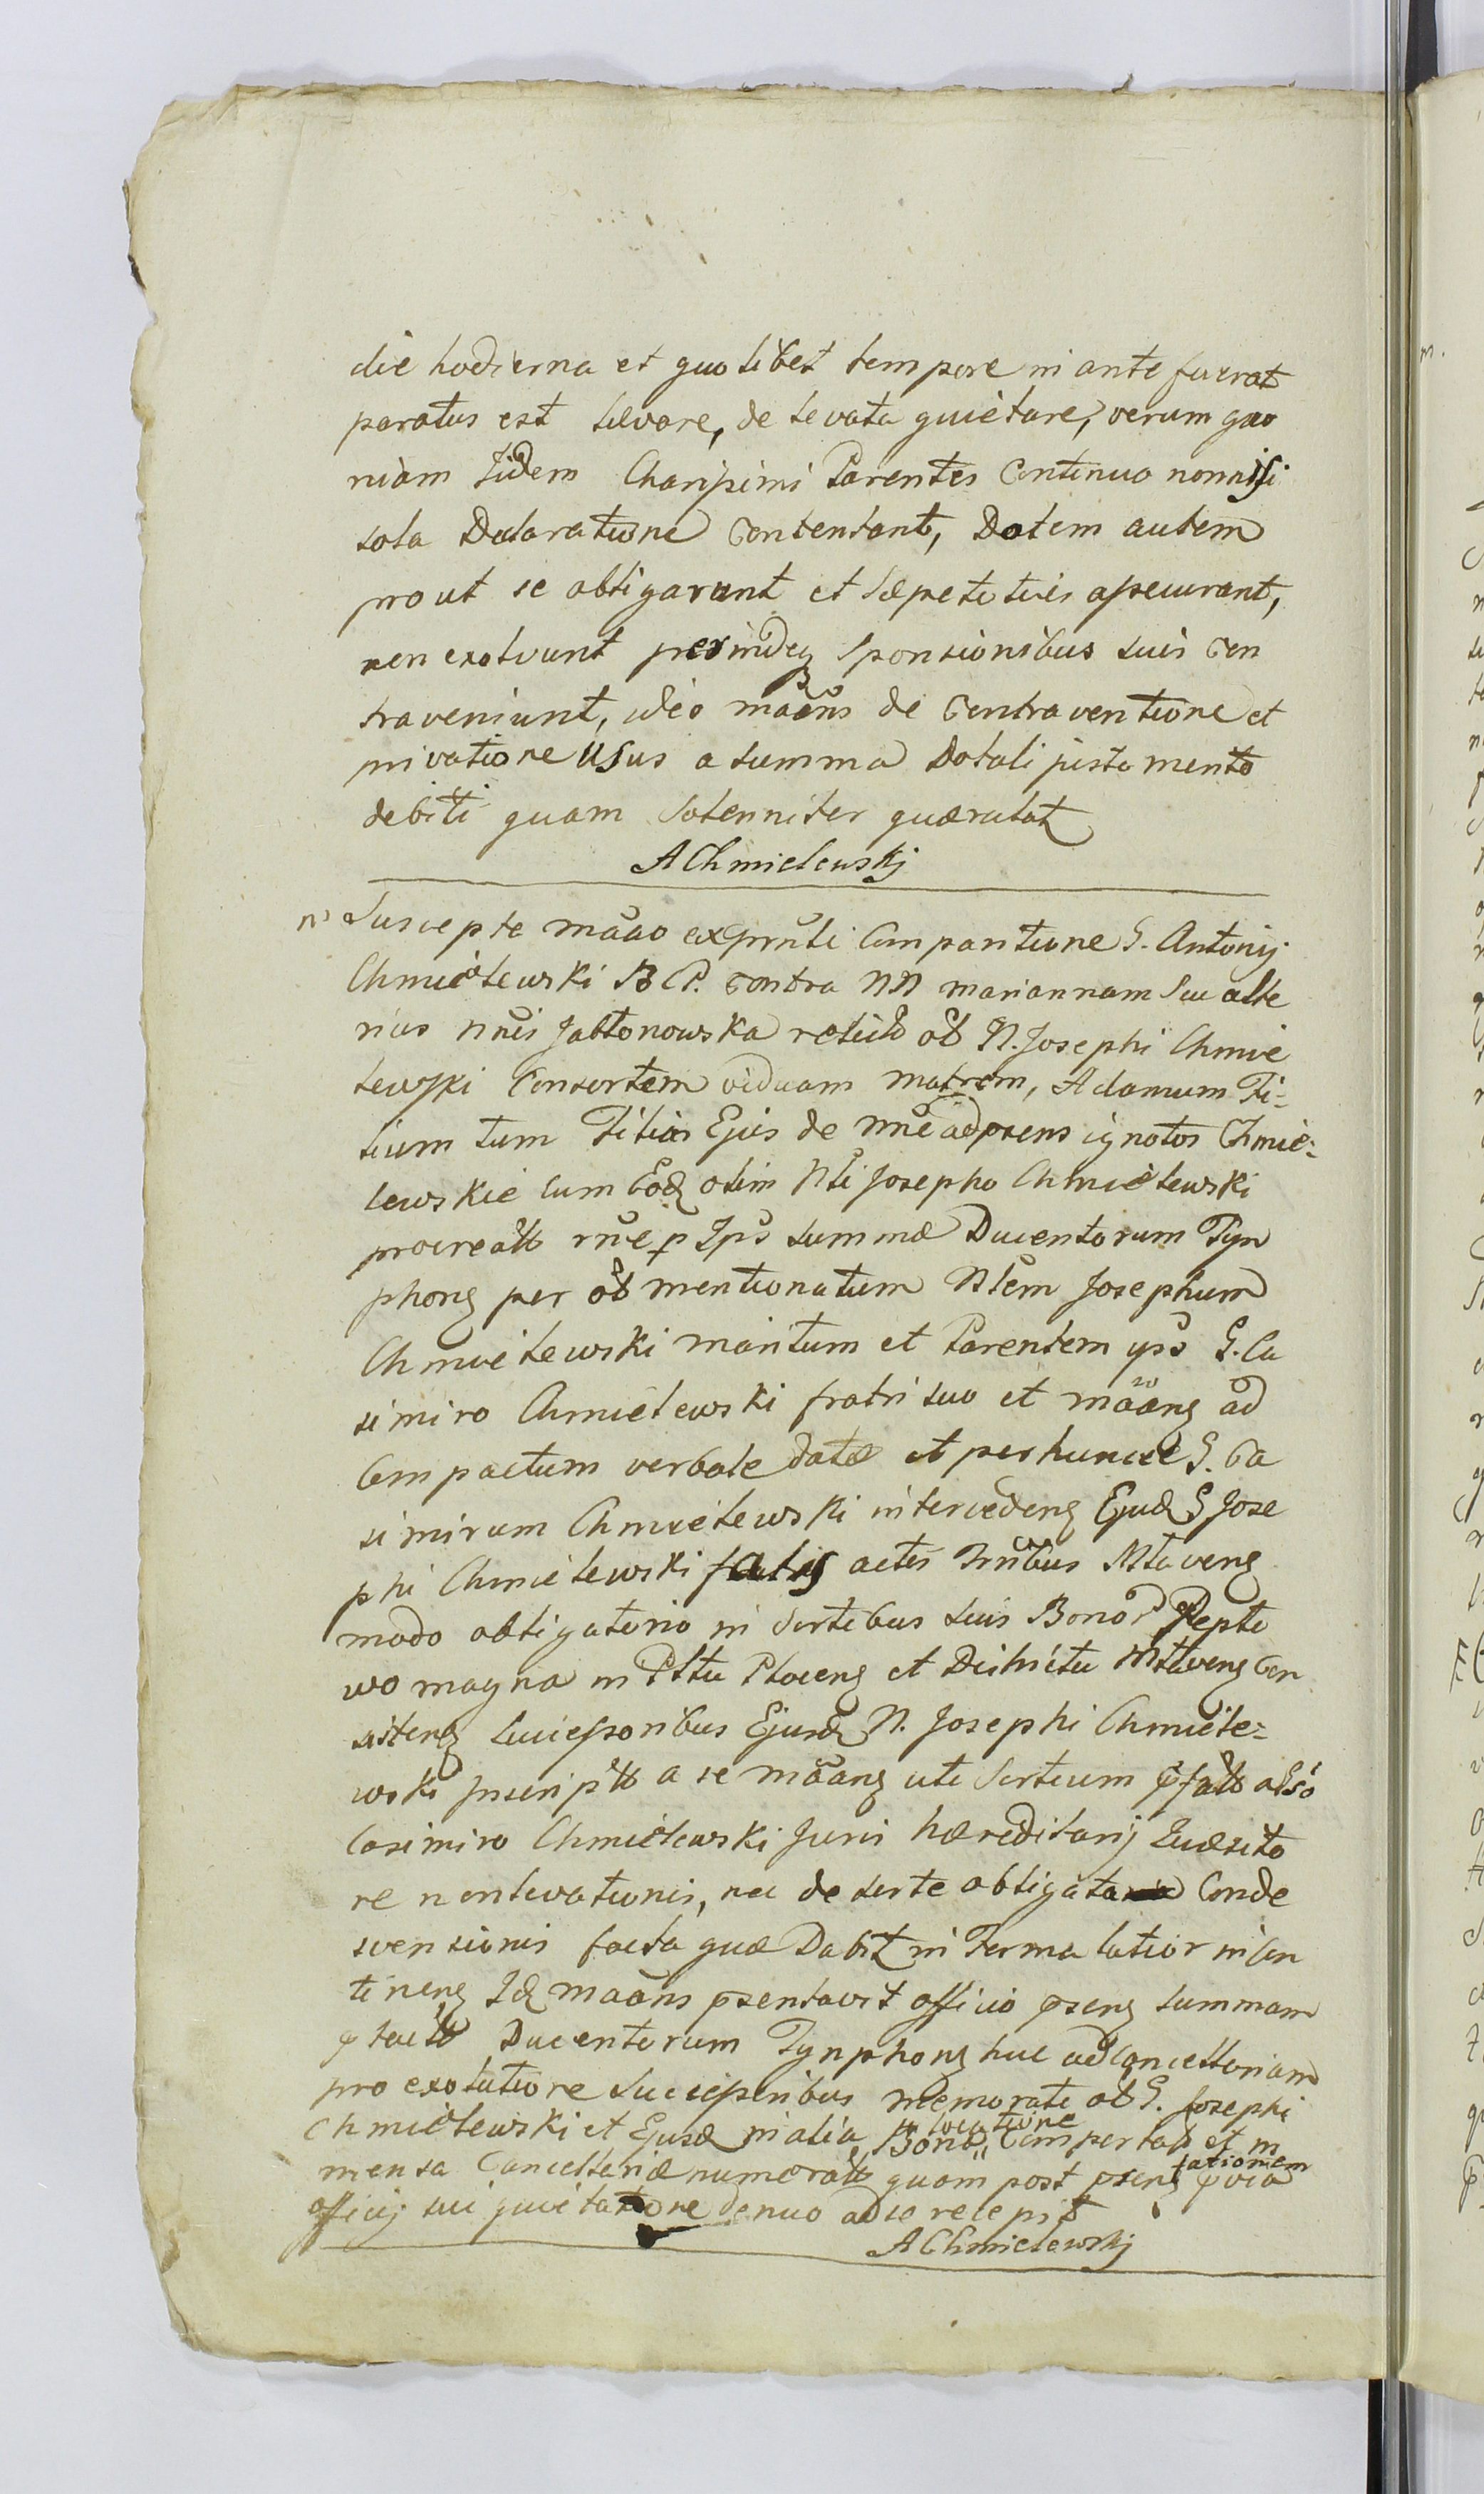 die hodierna et quolibet tempore in ante fuerat
paratus est levare, de levata quietare, verum quo
niam Iidem Charissimi Parentes Continuo nonnisi
sola Declaratione Contentant, Dotem autem
prout se obligarunt et Sæpetitis assecurant,
non exolvunt perindeq Sponsionibus suis Con
traveniunt, ideo maãns de Contraventione et
privatione Usus a summa Dotali juste mento
debiti quam Solenniter quærulat
AChmielewskj
Suscepte mãao exprnti Comparitione G. Antonij
Chmielewski B P. contra NN mariannam Suæ alte
rius nnis Jabłonowska relictã ol N. Josephi Chmie
lewski Consortem viduam matrem, Adamum Fi=
lium tum Filias Ejus de nne ad præns ignotos Chmie=
lewskie cum Eod olim Nli Josepho Chmielewski
procreatt rne p Ips summæ Ducentorum Tyn
phong per ol mentionatum Nlem Josephum
Chmielewski maritum et Parentem ips G. Ca
simiro Chmielewski fratri suo et mãang ad
Compactum verbale datæ et per hunce G. Ca
simirum Chmielewski intercedeng Ejusd G Jose
phi Chmielewski fatis actis Trnibus Mlaveng
modo obligatorio in Sortibus suis Bonor Pepło
wo magna in Pttu Ploceng et Districtu Mlaveng Con
sisteng Successoribus Ejusd N. Josephi Chmiele=
wski Inscriptt a se mãang uti Sortium pfatt also
Casimiro Chmielewski Juris hæreditarij Quæsito
re non levationis, nec de sorte obligata Conde
scensionis facta quæ Dabit in Terma latior in Con
tineng Id maãns psentavit officio pseng summam
pfactt Ducentorum Tynphong huc ad Cancellariam
pro exolutione Successoribus memorati ol G. Josephi
Chmielewski et Ejusd in alia Bona locatione Comportat et in
mensa Cancellariæ numeratt quam post pseng pvia tationem
officij sui quietatione denuo ad se recepit
AChmielewskj